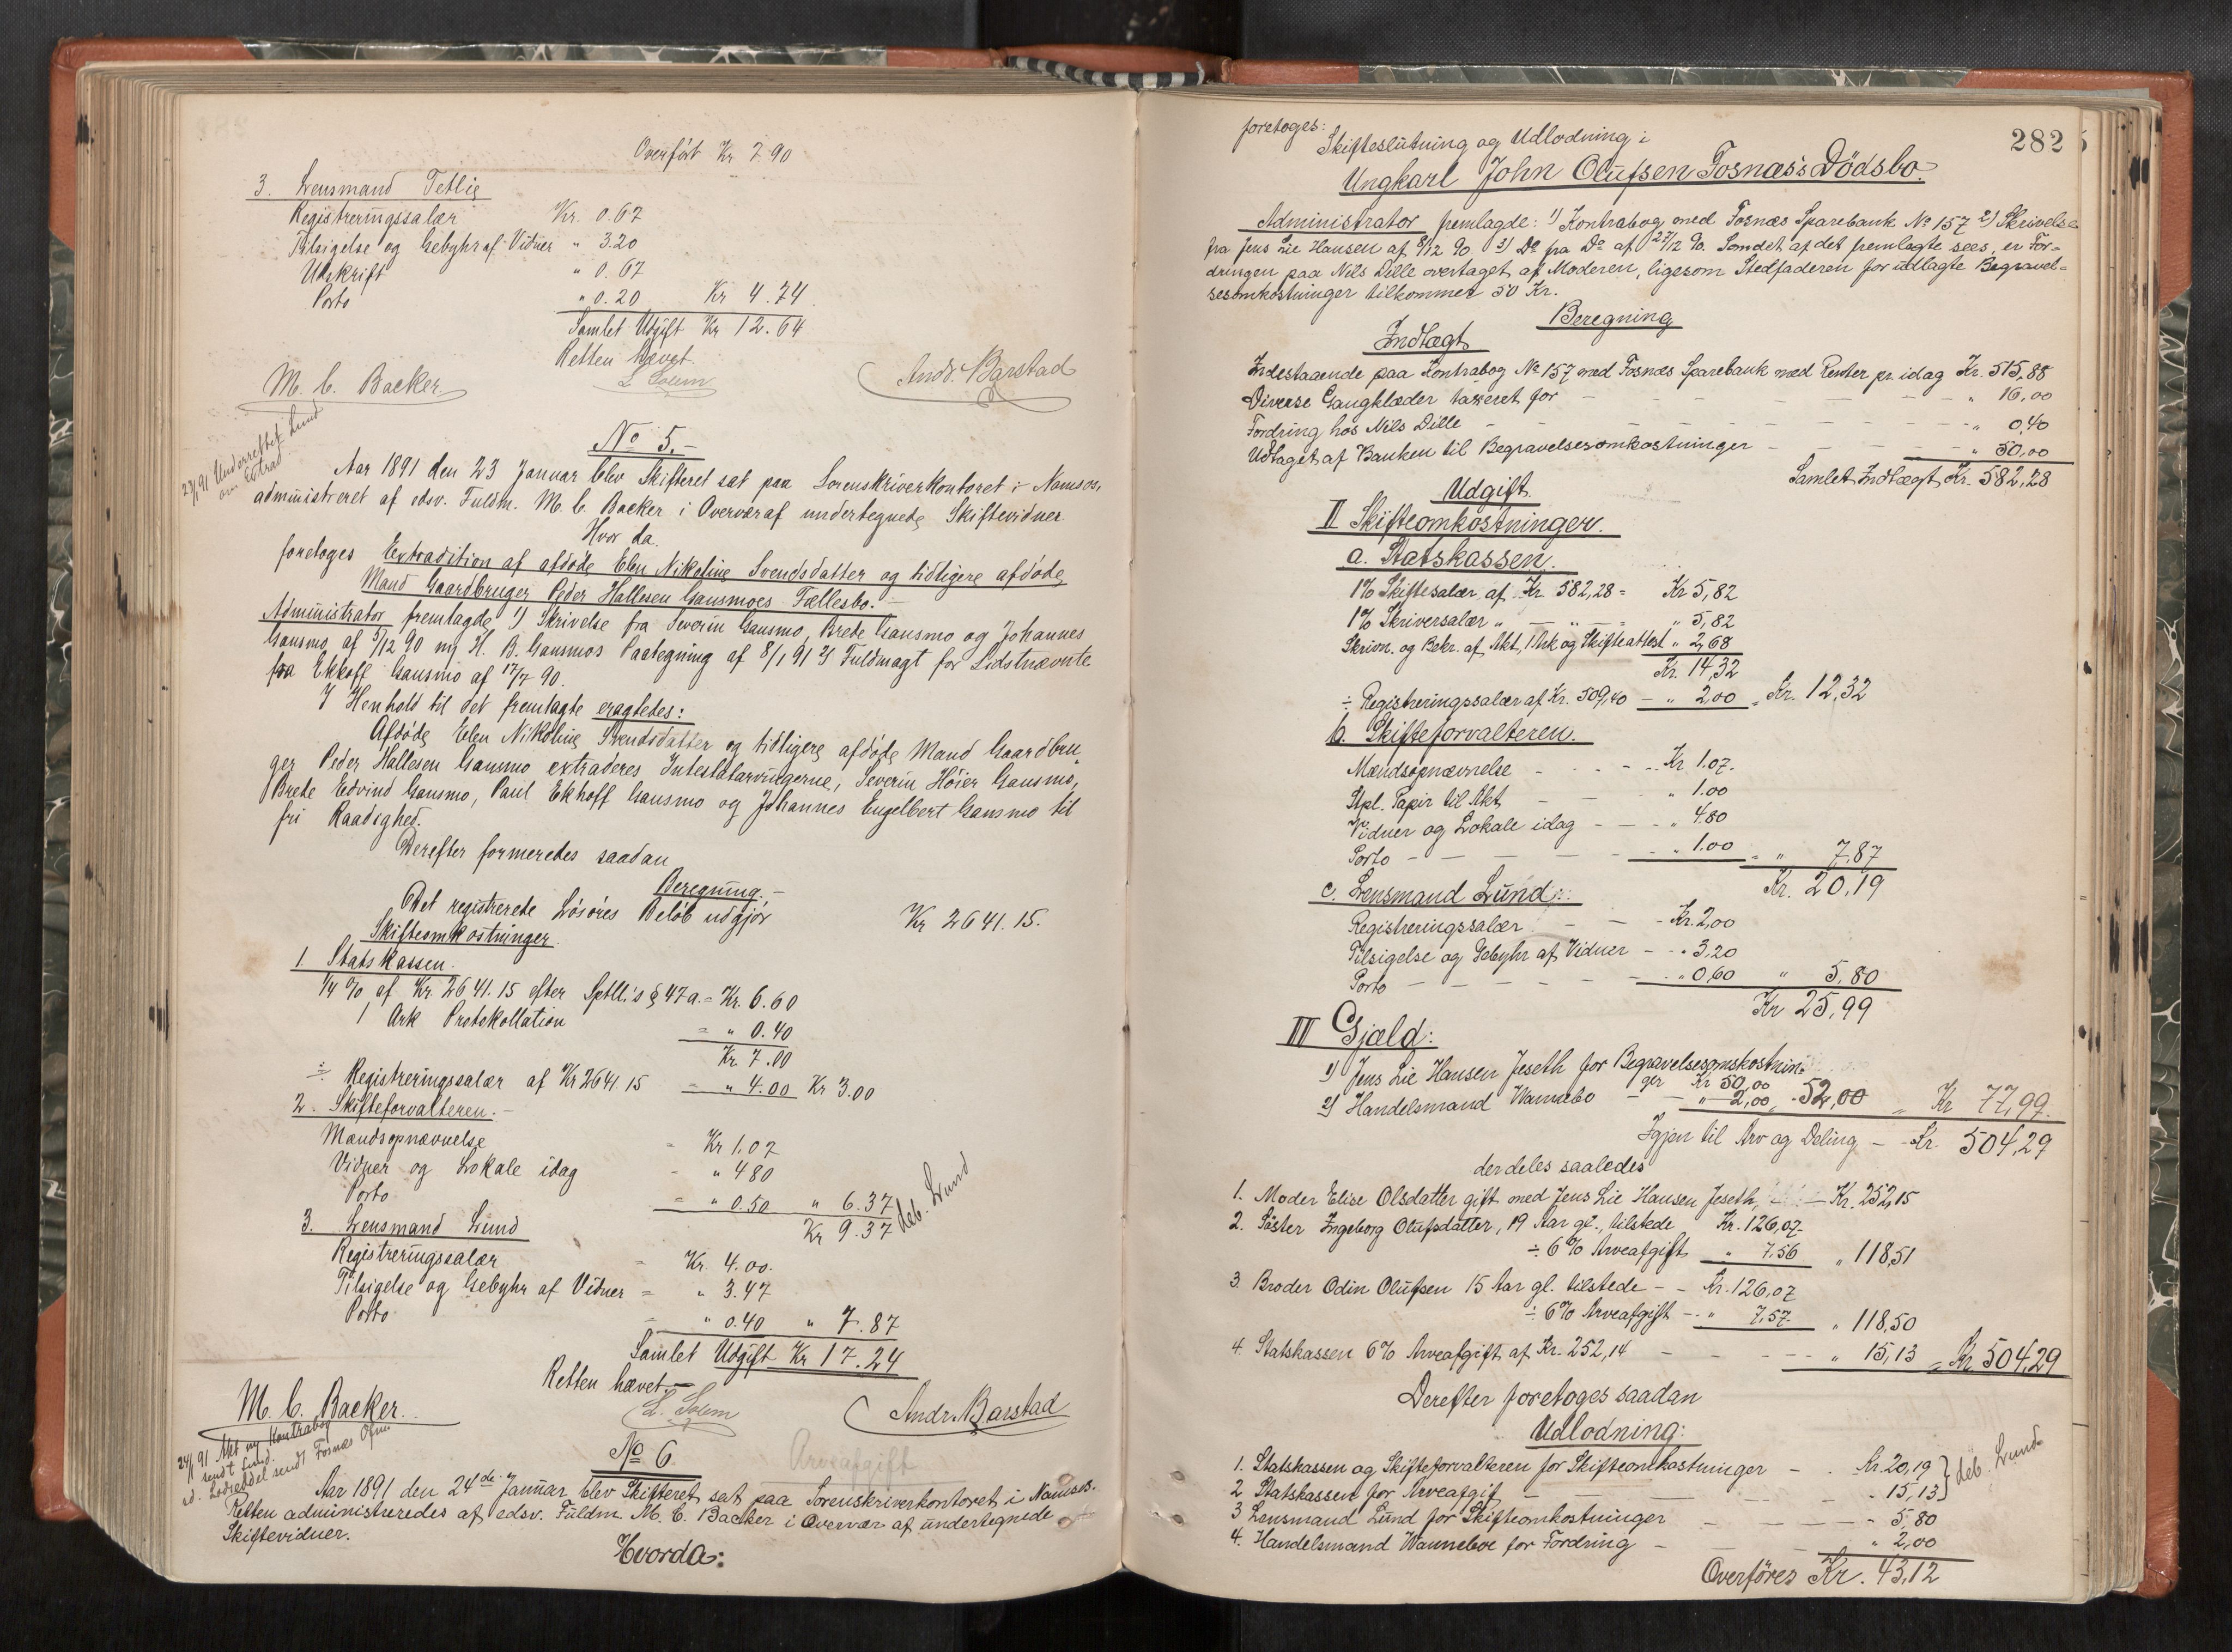 Overført Kr 7.90
3. Lensmand Tetlie
Registreringssalær Kr. 0.67
Tilsigelse og Gebyhr af Vidner " 3.20
Udskrift " 0.67
Porto " 0.20 Kr 4.74
Samlet Udgift Kr 12.64
Retten hævet.
M. C. Backer. L Solem Andr. Barstad
24/1 91 Underrettet Lund
om Extrad
No 5.-
Aar 1891 den 23 Januar blev Skifteret sat paa Sorenskriverkontoret i Namsos,
administreret af edsv. Fuldm. M. C. Backer i Overvær af undertegnede Skiftevidner.
Hvor da
foretoges Extradition af afdøde Elen Nikoline Svendsdatter og tidligere afdøde
Mand Gaardbruger Peder Hallesen Gausmoes Fællesbo.-
Administrator fremlagde 1) Skrivelse fra Severin Gausmo, Brede Gausmo og Johannes
Gausmo af 5/12 90 m/ H. B. Gausmos Paategning af 8/1 91 2) Fuldmagt for Sidstnævnte
fra Ekhoff Gausmo af 17/7 90.
I Henhold til det fremlagte eragtedes:
Afdøde Elen Nikoline Svendsdatter og tidligere afdøde Mand Gaardbru-
ger Peder Hallesen Gausmo extraderes Intestatarvingerne, Severin Høier Gausmo,
Brede Edvind Gausmo, Paul Ekhoff Gausmo og Johannes Engelbert Gausmo til
fri Raadighed.
Derefter formeredes saadan
Beregning.-
Det registrerede Løsøres Beløb udgjør Kr 2641.15.
Skifteomkostninger.
1. Statskassen.
1/4 % af Kr. 2641.15 efter Sptll.'s § 47 a. = Kr. 6.60
1 Ark Protokollation = " 0.40
Kr. 7.00
÷ Registreringssalær af Kr 2641.15 = " 4.00 Kr 3.00
2. Skifteforvalteren.-
Mandsopnævnelse = Kr 1.07
Vidner og Lokale idag = " 4 80
Porto = " 0.50 " 6.37
Kr 9.37 deb. Lund
3. Lensmand Lund
Registreringssalær = Kr. 4.00.
Tilsigelse og Gebyhr af Vidner = " 3.47
Porto = " 0.40 " 7.87
Samlet Udgift Kr 17.24
Retten hævet.-
M. C. Backer. L. Solem Andr. Barstad
24/1 91 Akt m/ Kontrabog
sendt Lund.
s.d. Lodseddel sendt Fosnæs Ofm.
No 6. Arveafgift
Aar 1891 den 24de Januar blev Skifteret sat paa Sorenskriverkontoret i Namsos.
Retten administreredes af edsv. Fuldm. M. C. Backer i Overvær af undertegnede
Skiftevidner.
Hvorda:
282
foretoges:
Skifteslutning og Udlodning i
Ungkarl John Olufsen Fosnæs's Dødsbo.
Administrator fremlagde: 1) Kontrabog med Fosnæs Sparebank No 157 2) Skrivelse
fra Jens Lie Hansen af 8/12 90. 3) Do fra Do af 27/12 90. Somdet af det fremlagte sees, er For-
dringen paa Nils Dille overtaget af Moderen, ligesom Stedfaderen for udlagte Begravel-
sesomkostninger tilkommer 50 Kr.
Beregning
Indtægt
Indestaaende paa Kontrabog No 157 med Fosnæs Sparebank med Renter pr. idag Kr. 515,88
Diverse Gangklæder taxeret for " 16,00
Fordring hos Nils Dille " 0,40
Udtaget af Banken til Begravelsesomkostninger " 50,00
Samlet Indtægt Kr. 582,28
Udgift
II Skifteomkostninger.
a. Statskassen.
1% Skiftesalær af Kr. 582,28 = Kr 5,82
1% Skriversalær " — " — = " 5,82
Skrivn. og Bekr. af Akt, 1 Ark og Skifteattest " 2,68
Kr. 14,32
÷ Registreringssalær af Kr. 509,40 — " 2,00 = Kr. 12,32
b. Skifteforvalteren.
Mandsopnævnelse Kr 1.07.
Stpl. Papir til Akt " 1.00
Vidner og Lokale idag " 4.80
Porto " 1.00 = " 7,87
Kr. 20,19
c. Lensmand Lund:
Registreringssalær - Kr. 2,00
Tilsigelse og Gebyhr af Vidner - " 3,20
Porto " 0,60 " 5,80
Kr 25,99
III Gjæld:
1) Jens Lie Hansen Jeseth for Begravelsesomskostnin-
ger Kr 50,00
2) Handelsmand Wannebo " 2,00 " 52,00 " Kr 77,99.
Igjen til Arv og Deling — Kr. 504,29
der deles saaledes
1. Moder Elise Olsdatter gift med Jens Lie Hansen Jeseth, — Kr. 252,15
2. Søster Ingeborg Olufsdatter, 19 Aar gl., tilstede Kr. 126,07
÷ 6% Arveafgift " 7.56 " 118,51
3. Broder Odin Olufsen 15 Aar gl. tilstede - - Kr. 126,07
÷ 6% Arveafgift - " 7,57. " 118,50
4. Statskassen 6% Arveafgift af Kr. 252,14 " 15,13 = Kr 504,29
Derefter foretoges saadan
Udlodning:
1. Statskassen og Skifteforvalteren for Skifteomkostninger - Kr. 20,19 } deb. Lund
2 Statskassen for Arveafgif " 15,13
3 Lensmand Lund for Skifteomkostninger " 5,80
4. Handelsmand Wanneboe for Fordring " 2,00
Overføres Kr. 43,12